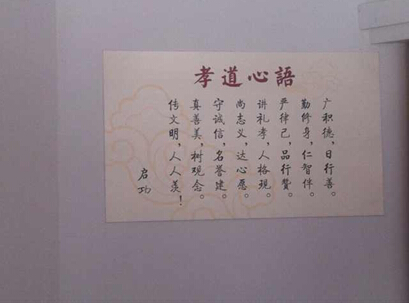 孝道心語
广积德，日行善。
勤修身，仁智伴。
严律己，品行赞。
讲礼孝，人格现。
尚志义，达心愿。
守诚信，名誉建。
真善美，树观念。
传文明，人人羡！
启功